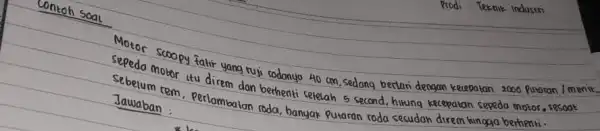 Prodi Teknik Industri
Contoh Soal
Motor Scoopy Fahir yang ruji rodanya 40 cm, sedang berlari dengan kecepatan 2000 Putaran / menit.
sepeda motor itu direm dan berhenti setelah 5 second, hitung kecepatan sepeda motor, sesaat
sebelum rem, perlambatan roda, banyak Putaran roda sesudah direm hingga berhenti.
Jawaban :